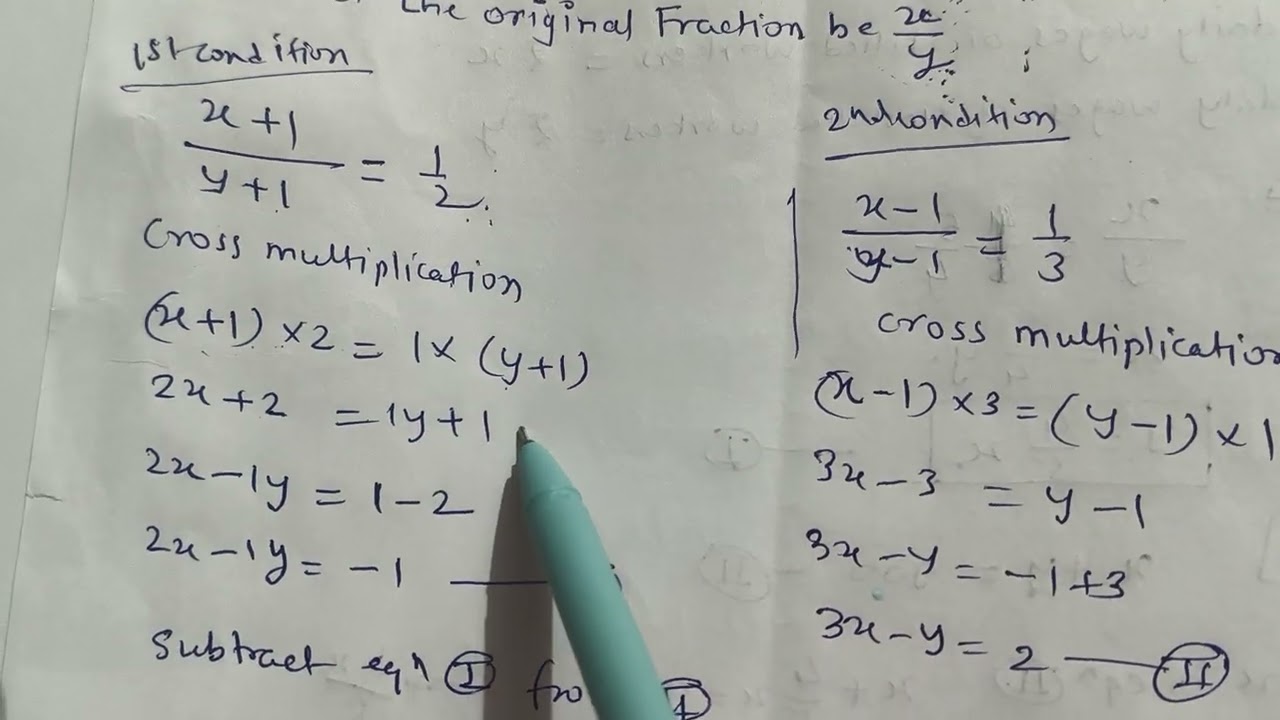 the original Fraction be x/y
1st condition
x+1/y+1 = 1/2
Cross multiplication
(x+1) ×2 = 1× (y+1)
2x+2 = 1y+1
2x-1y = 1-2
2x-1y = -1
Subtract eqn I
2nd condition
x-1/y-1 = 1/3
cross multiplication
(x-1) ×3 = (y-1) ×1
3x-3 = y-1
3x-y = -1+3
3x-y = 2 — II